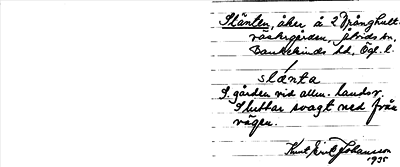 Slänten, åker å 2 Drånghult
västergården, Åtvids sn,
Bankekinds hd, Ögl. l.
slænta
S. gården vid allm. landsv.
Sluttar svagt ned från
vägen.
Knut Eric Johansson
1935